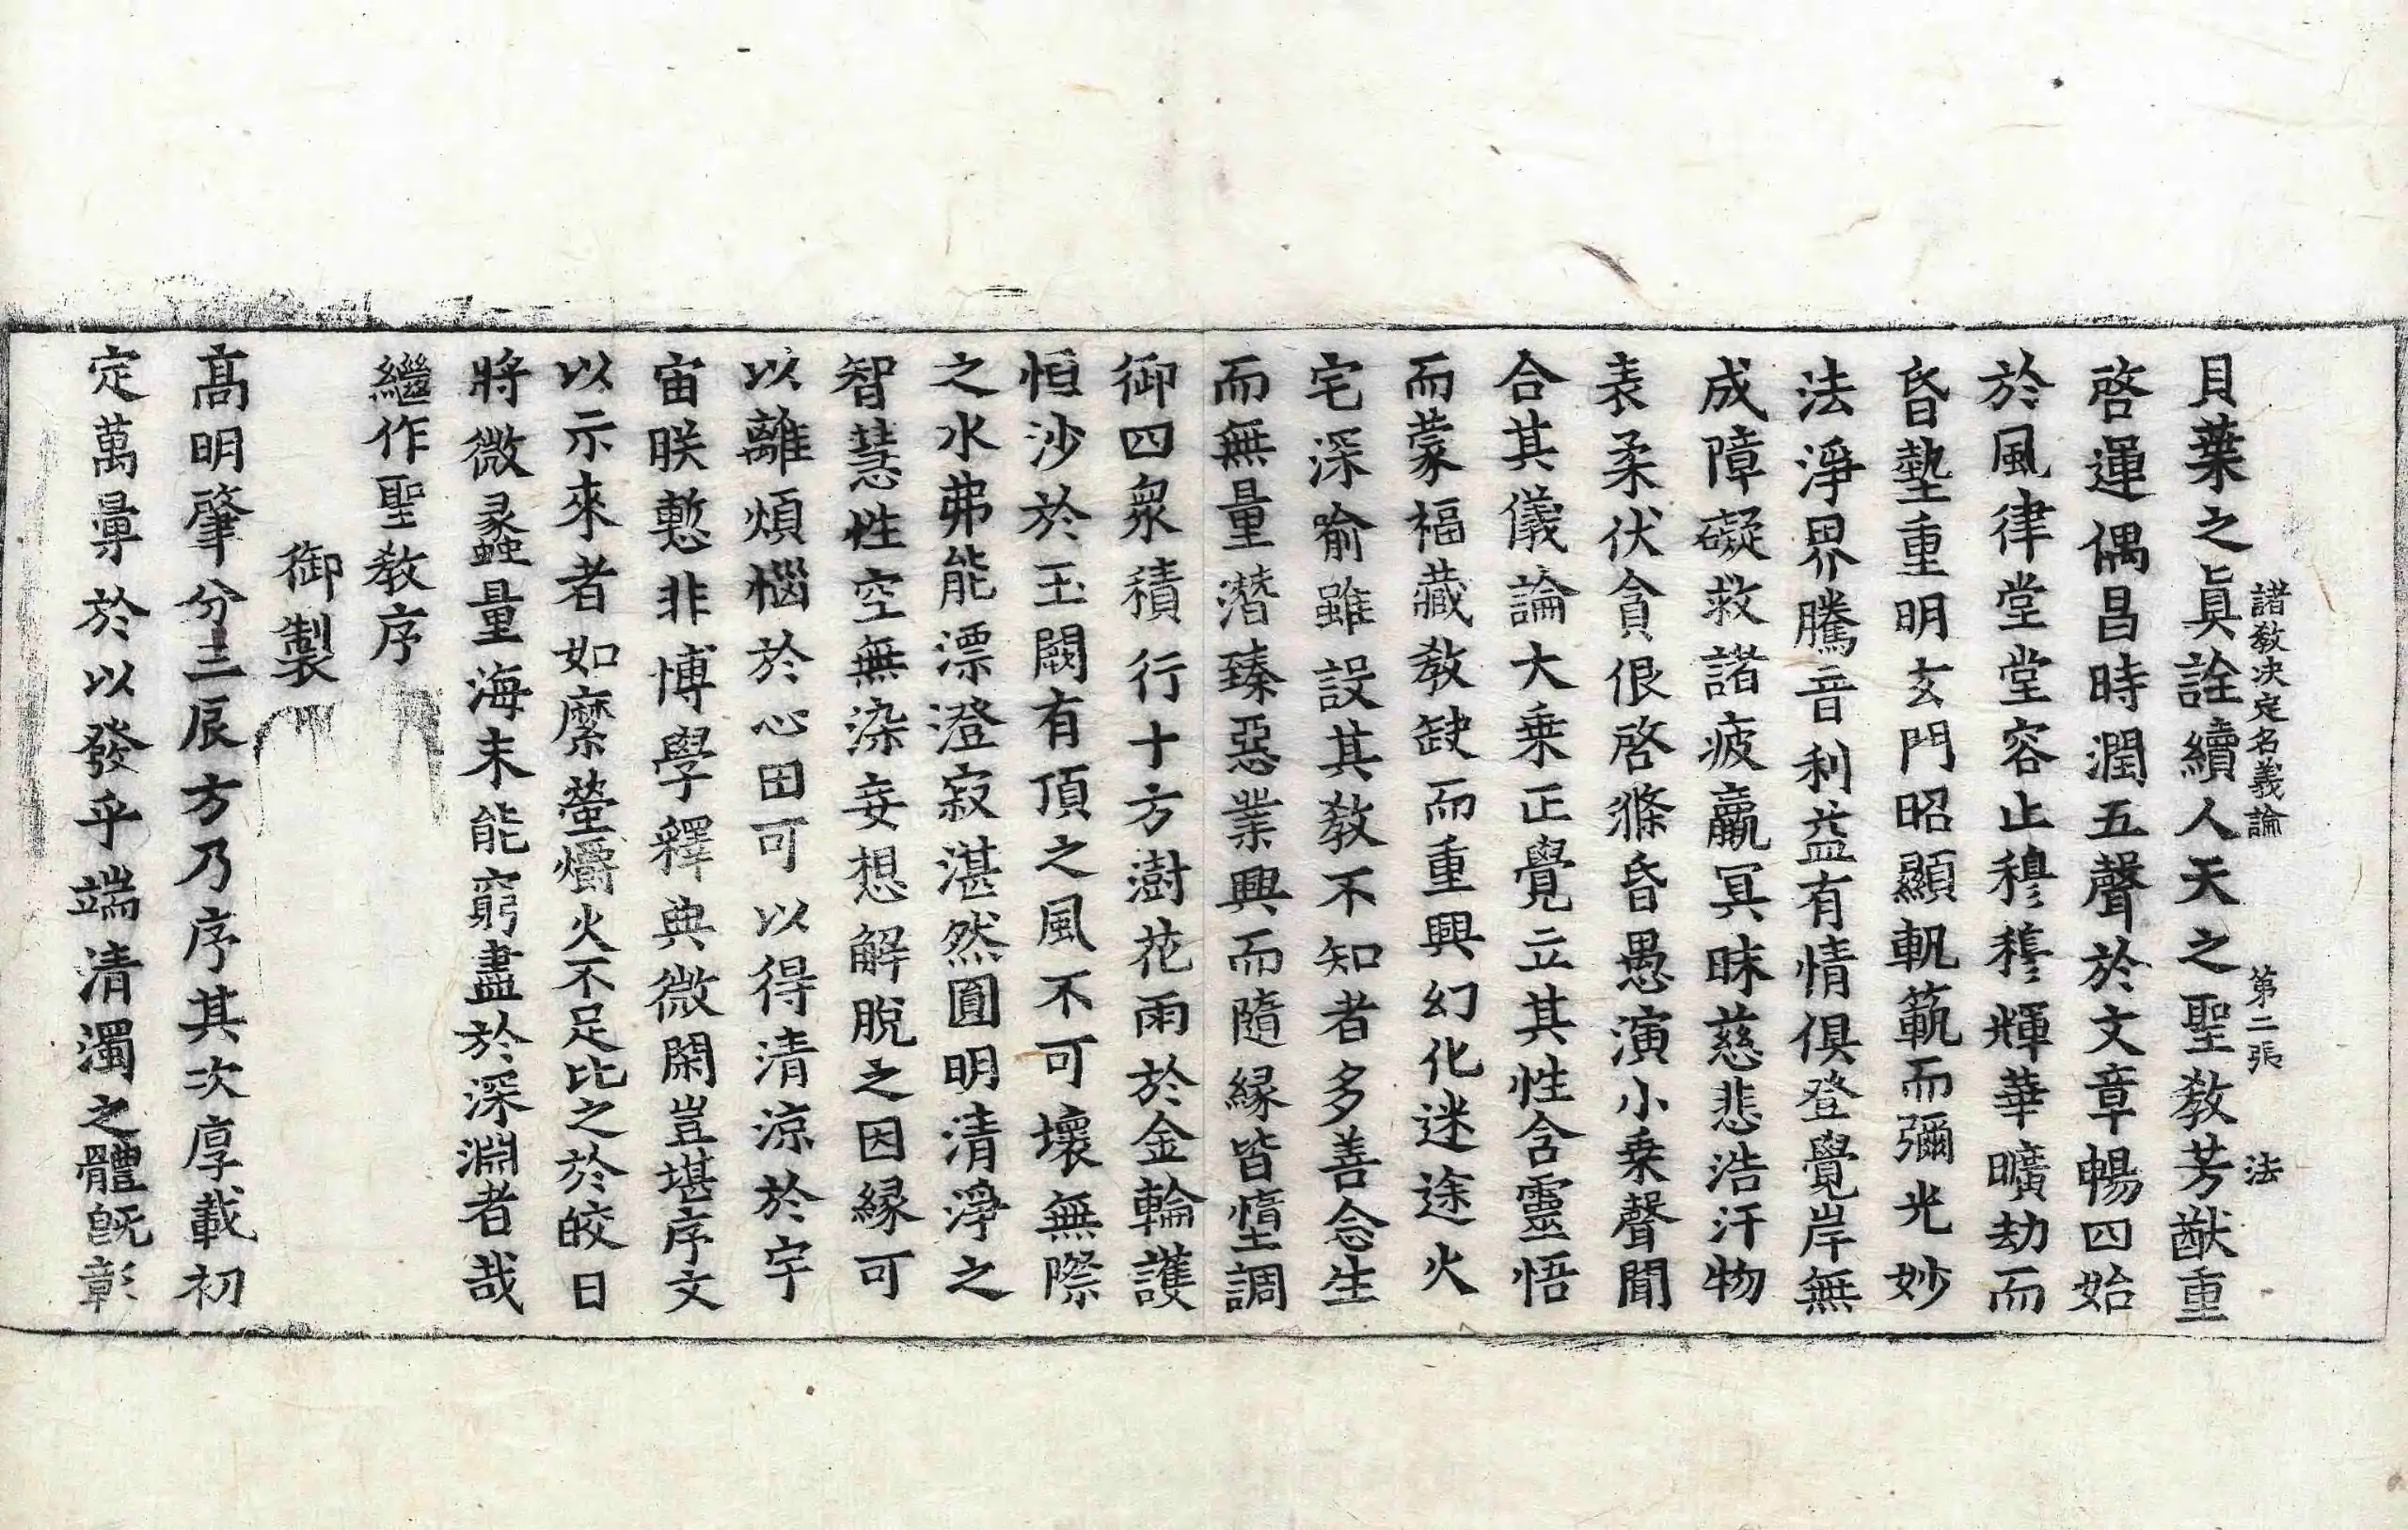 諸教決定名義論 第二張 法
貝葉之眞詮續人天之聖教芳猷重
啓運偶昌時潤五聲於文章暢四始
於風律堂堂容止穆穆輝華曠劫而
昏墊重明玄門昭顯軌範而彌光妙
法淨界騰音利益有情俱登覺岸無
成障礙救諸疲羸冥昧慈悲浩汗物
表柔伏貪佷啓滌昏愚演小乗聲聞
合其儀論大乗正覺立其性含靈悟
而蒙福藏教缺而重興幻化迷途火
宅深喻雖設其教不知者多善念生
而無量潛臻惡業興而隨縁皆墮調
御四衆積行十方澍花雨於金輪護
恒沙於玉闕有頂之風不可壞無際
之水弗能漂澄寂湛然圓明清淨之
智慧性空無染妄想解脫之因縁可
以離煩惱於心田可以得清涼於宇
宙朕慙非博學釋典微閑豈堪序文
以示來者如縻螢爝火不足比之於皎日
將微蠡量海未能窮盡於深淵者哉
繼作聖教序
御製
髙明肇分三辰方乃序其次厚載初
定萬彙於以發乎端清濁之體旣彰